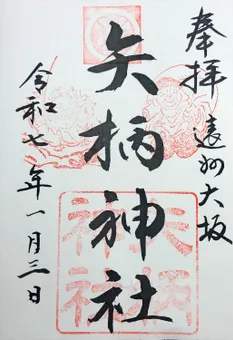 奉拝
遠州大坂
矢柄神社
令和七年一月三日
矢柄
神社